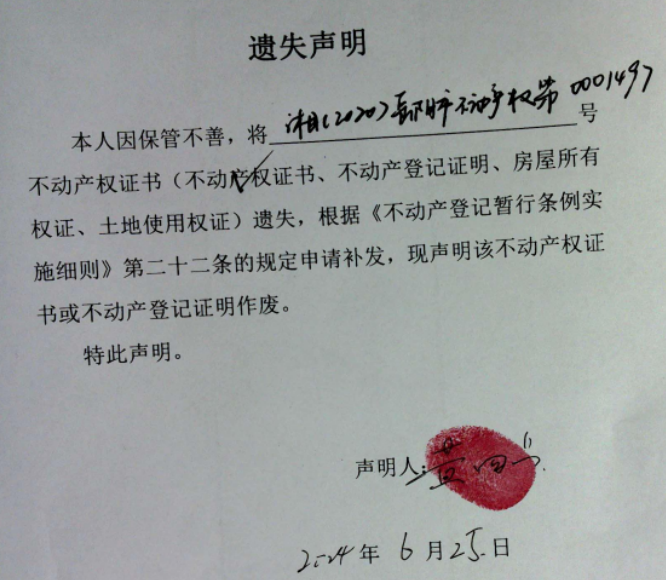 遗失声明
本人因保管不善，将湘(2020)岳阳市不动产权第0001497号
不动产权证书（不动产权证书、不动产登记证明、房屋所有
权证、土地使用权证）遗失，根据《不动产登记暂行条例实
施细则》第二十二条的规定申请补发，现声明该不动产权证
书或不动产登记证明作废。
特此声明。
声明人：
2024年6月25日